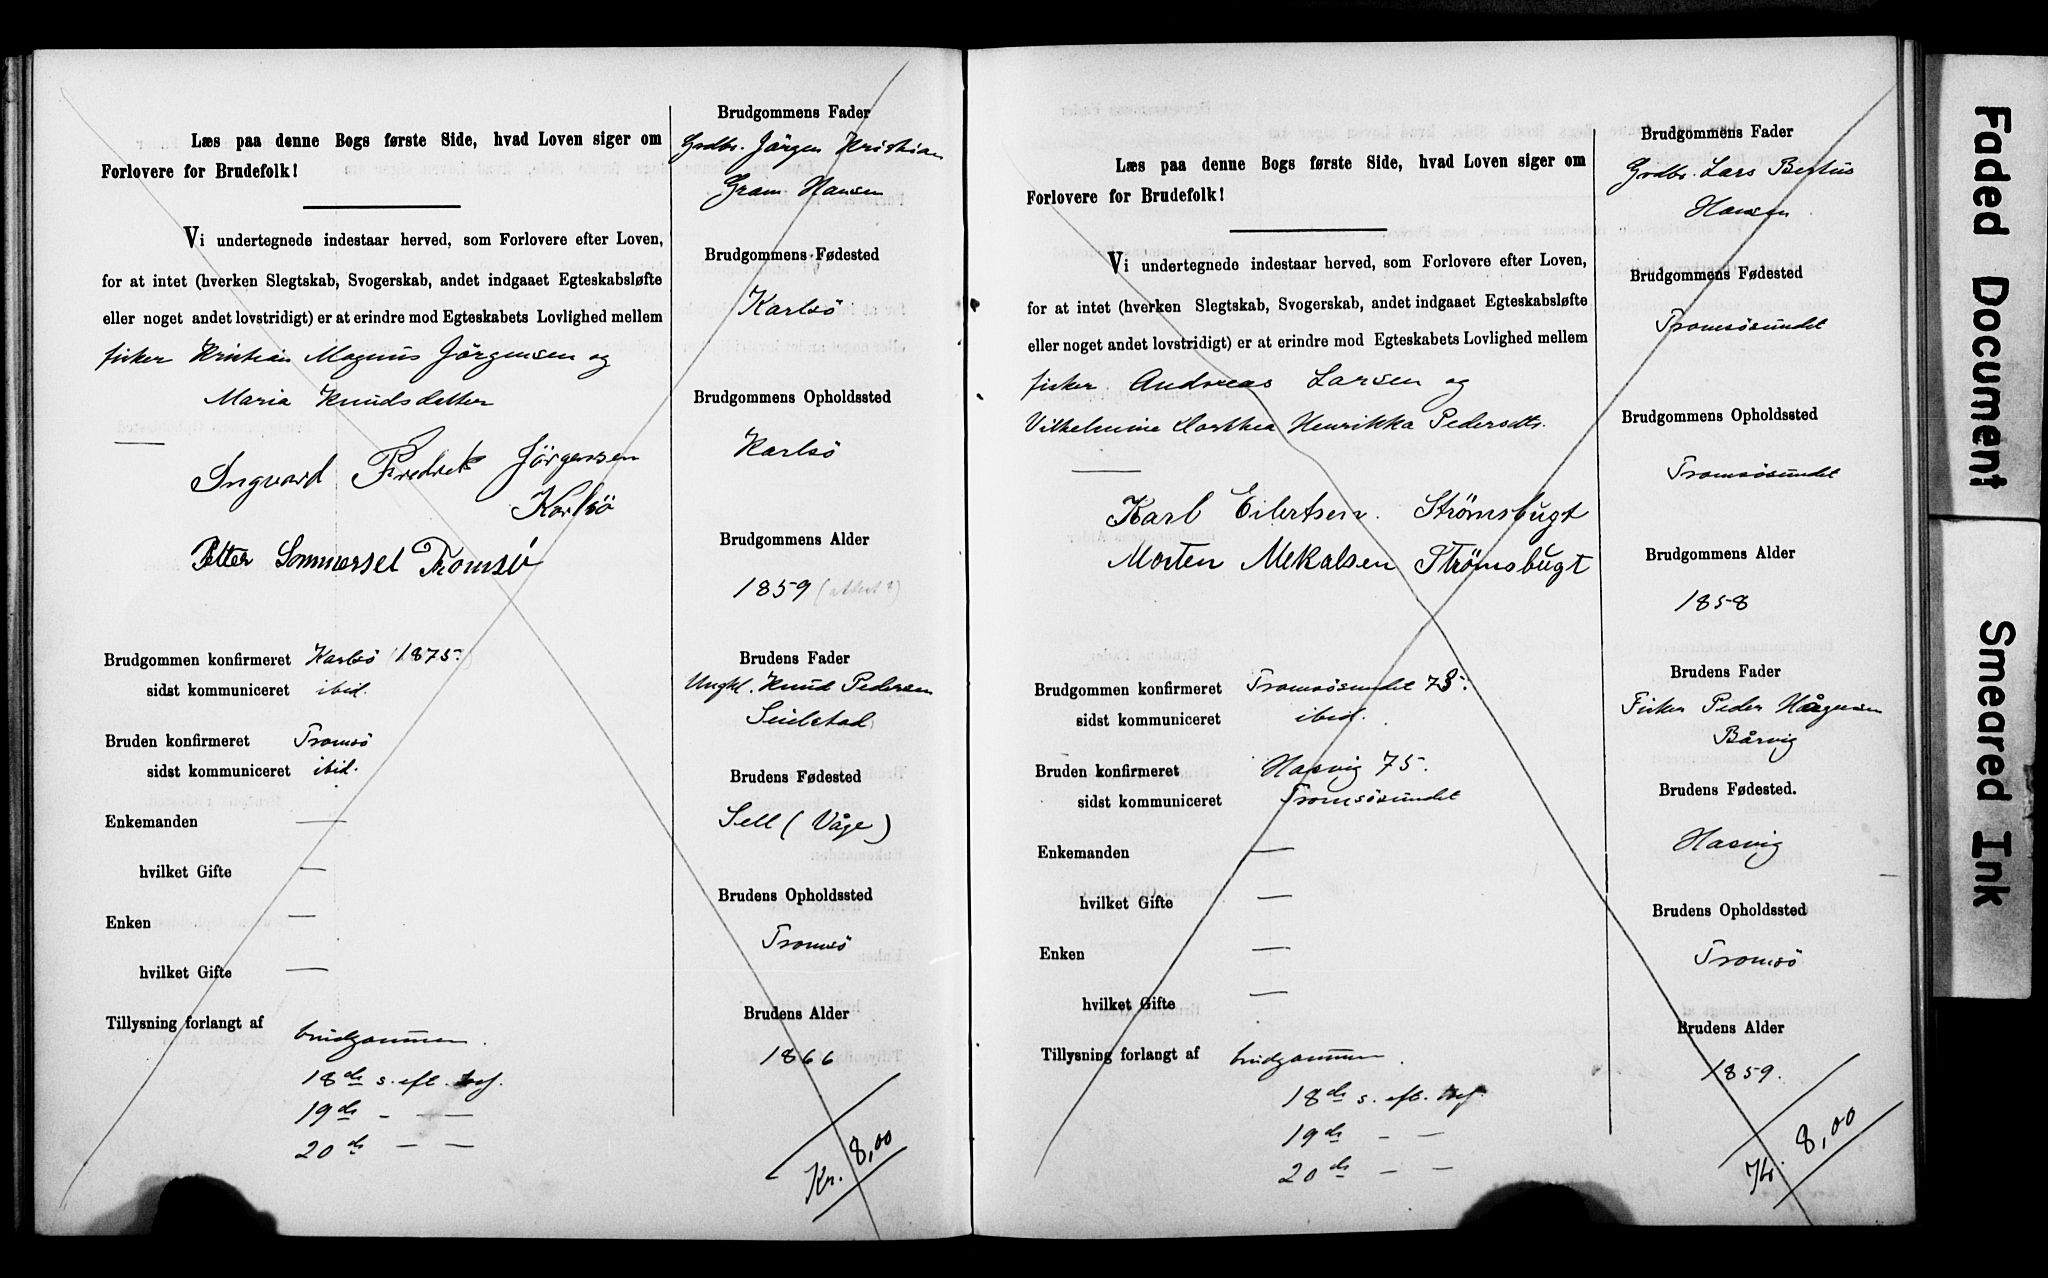 Læs paa denne Bogs første Side, hvad Loven siger om
Forlovere for Brudefolk!
Vi undertegnede indestaar herved, som Forlovere efter Loven,
for at intet (hverken Slegtskab, Svogerskab, andet indgaaet Egteskabsløfte
eller noget andet lovstridigt) er at erindre mod Egteskabets Lovlighed mellem
fisker Kristian Magnus Jörgensen og
Maria Knudsdatter
Ingvard Fredrek Jörgensen
Karlsö
Petter Sommersel Tromsö
Brudgommen konfirmeret Karlsö (1875)
sidst kommuniceret ibid.
Bruden konfirmeret Tromsö
sidst kommuniceret ibid.
Enkemanden —
hvilket Gifte —
Enken —
hvilket Gifte —
Tillysning forlangt af brudgommen.
18de s. eft. tref.
19de - — —
20de — —
Brudgommens Fader
Grdbr. Jörgen Kristian
Gram Hansen
Brudgommens Fødested
Karlsö
Brudgommens Opholdssted
Karlsö
Brudgommens Alder
1859 (attest?)
Brudens Fader
Ungkl. Knud Pedersen
Brudens Fødested
Sell (Våge)
Brudens Opholdssted
Tromsö
Brudens Alder
1866
Kr. 8,00
Læs paa denne Bogs første Side, hvad Loven siger om
Forlovere for Brudefolk!
Vi undertegnede indestaar herved, som Forlovere efter Loven,
for at intet (hverken Slegtskab, Svogerskab, andet indgaaet Egteskabsløfte
eller noget andet lovstridigt) er at erindre mod Egteskabets Lovlighed mellem
fisker Andreas Larsen og
Vilhelmine Dorthea Henrikka Pedersdtr.
Karl Eilertsen. Strömsbugt
Morten Mekalsen Strømsbugt
Brudgommen konfirmeret Tromsösundet 73.
sidst kommuniceret ibid.
Bruden konfirmeret Hasvig 75.
sidst kommuniceret Tromsösundet
Enkemanden —
hvilket Gifte —
Enken —
hvilket Gifte —
Tillysning forlangt af brudgommen.
18de s. eft. tref.
19de - —
20de - —
Brudgommens Fader
Grdbr. Lars Bertus
Hansen
Brudgommens Fødested
Tromsösundet
Brudgommens Opholdssted
Tromsösundet
Brudgommens Alder
1858
Brudens Fader
Fisker Peder Hågensen
Bårvig
Brudens Fødested.
Hasvig
Brudens Opholdssted
Tromsö
Brudens Alder
1859.
Kr. 8,00
Faded Document
Smeared Ink